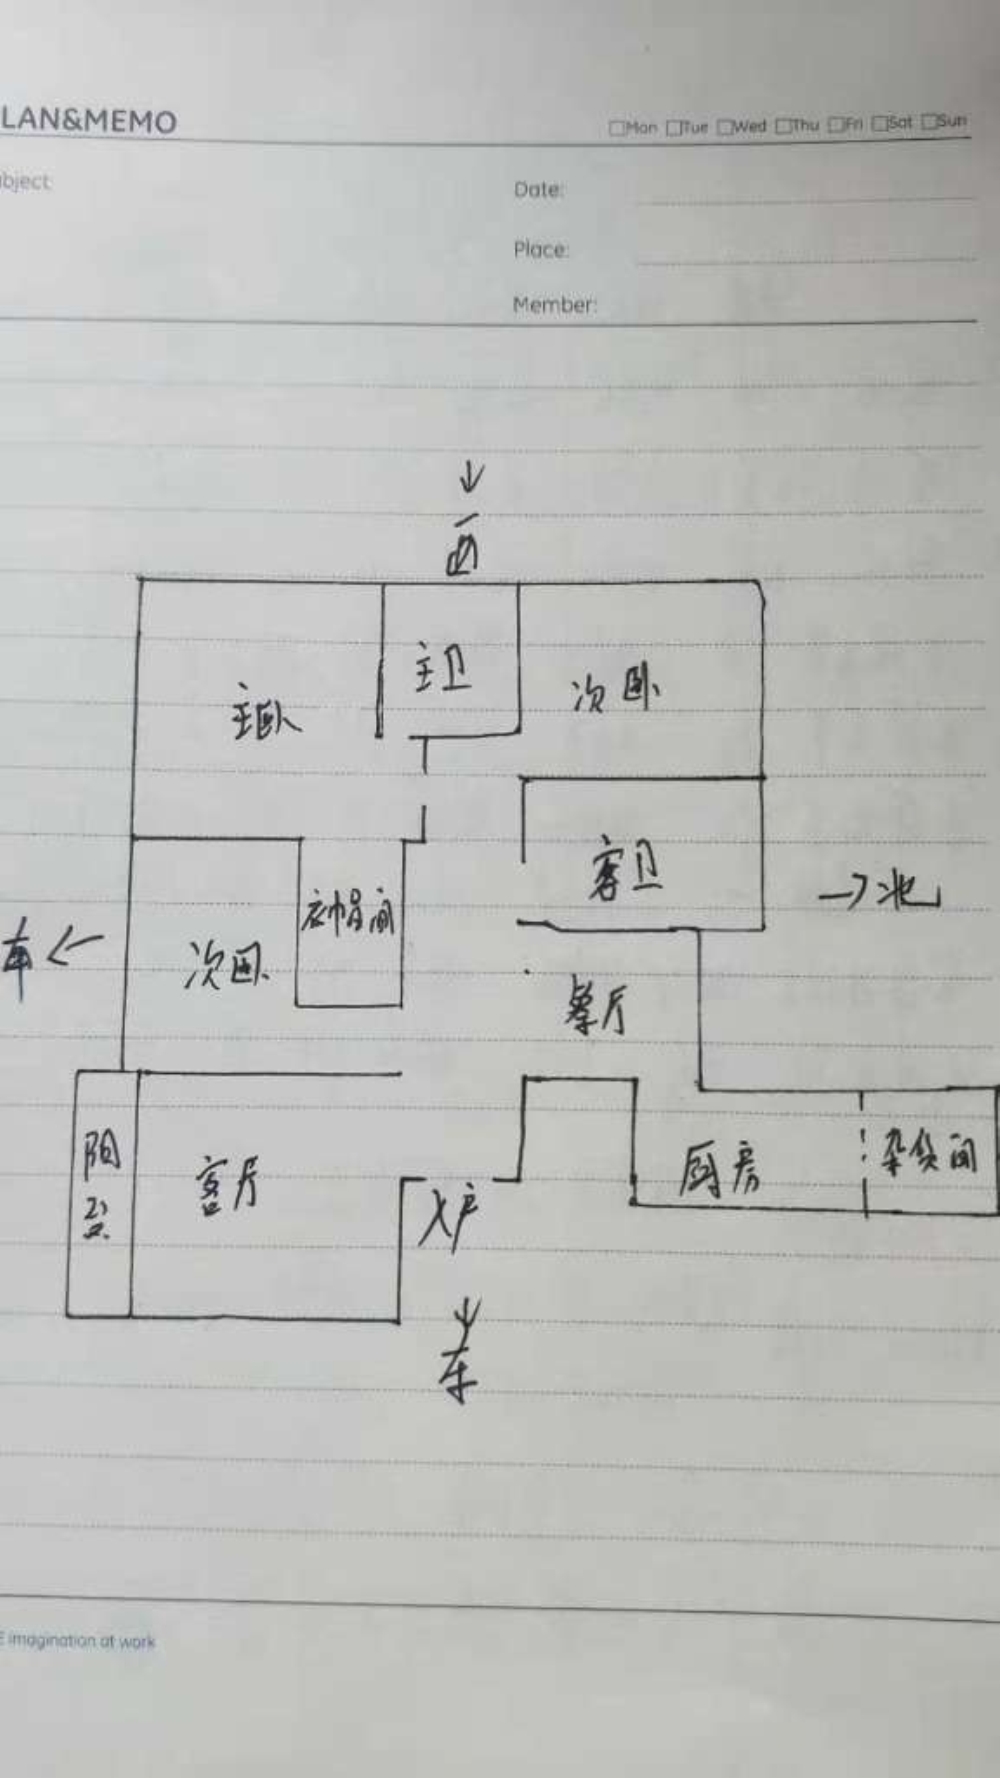 LAN&MEMO
Mon Tue Wed Thu Fri Sat Sun
bject
Date:
Place:
Member:
西
主卧
主卫
次卧
客卫
北
衣帽间
次卧
餐厅
阳台
客厅
入户
厨房
杂货间
东
E imagination at work